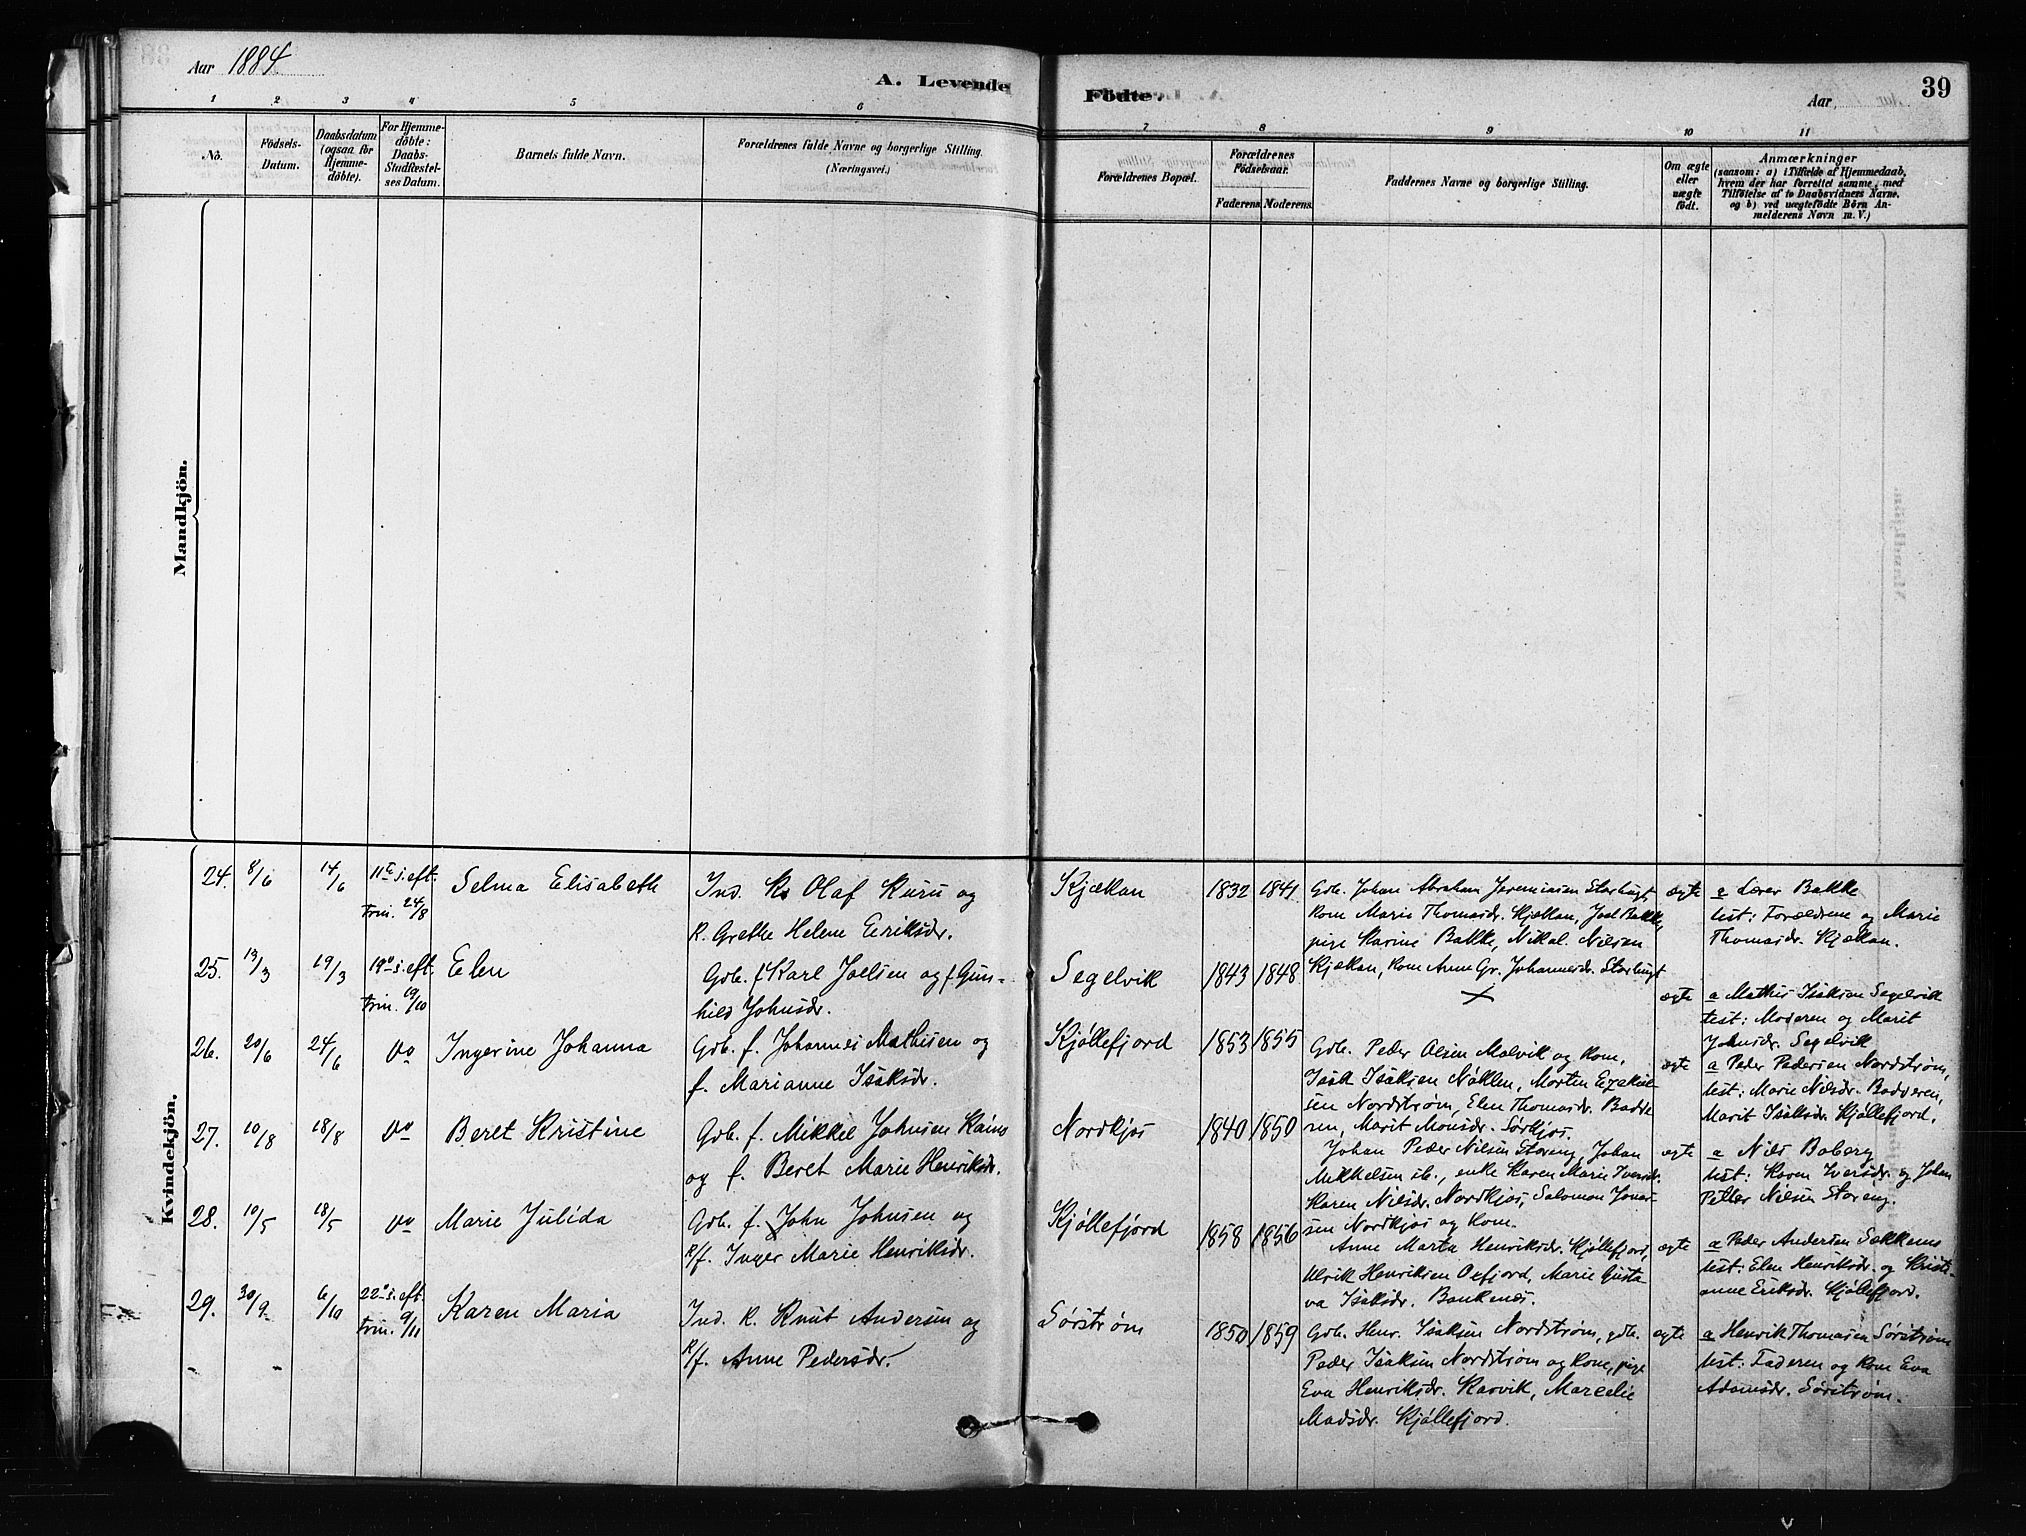 Aar 1884.
A. Levende Födte.
Aar
39
1 2 3 4 5 6 7 8 9 10 11
Nô.
Födsels-
Datum.
Daabsdatum
(ogsaa för
Hjemme-
döbte).
For Hjemme-
döbte:
Daabs-
Stadfæstel-
ses Datum.
Barnets fulde Navn.
Forældrenes fulde Navne og borgerlige Stilling.
(Næringsvei.)
Forældrenes Bopæl.
Forældrenes
Födselsaar.
Faderens. Moderens.
Faddernes Navne og borgerlige Stilling.
Om ægte
eller
uægte
födt.
Anmærkninger
(saasom: a) i Tilfælde af Hjemmedaab,
hvem der har forrettet samme, med
Tilföielse af to Daabsvidners Navne.
og b) ved uægtefödte Börn An-
melderens Navn m. V.)
Mandkjön.
Kvindekjön.
24. 8/6 14/6 11te s. eft.
Trin. 24/8
Selma Elisabeth
Ind. K. Olaf Kuru og
K. Grethe Helene Eriksdr.
Kjækan
1832 1841
Gdb. Johan Abraham Jeremiasen Storbugt,
kone Marie Thomasdr. Kjækan, Joel Bakke,
pige Karine Bakke, Nikol. Nilsen
Kjækan, kone Anne Gr. Johannesdr. Storbugt
ægte
a Lærer Bakke
test: Forældrene og Marie
Thomasdr. Kjækan.
25. 13/3 19/3 19o s. eft.
Trin. 19/10
Elen
Gdb. f. Karl Joelsen og f. Gun-
hild Johnsdr.
Segelvik
1843 1848
ægte
a Mathis Isaksen Segelvik
test: Moderen og Marit
Johnsdr. Segelvik
26. 20/6 24/6
Ingerine Johanna
Gdb. f. Johannes Mathisen og
f. Marianne Isaksdr.
Kjøllefjord
1853 1855
Gdb. Peder Olsen Molvik og kone,
Isak Isaksen Nøklen, Morten Ezekiel-
sen Nordstrøm, Elen Thomasdr. Badde
ren, Marit Monsdr. Sørkjos.
ægte
a Peder Pedersen Nordstrøm,
test: Marie Nilsdr. Badderen,
Marit Isaksdr. Kjøllefjord.
27. 10/8 18/8
Beret Kristine
Gdb. f. Mikkel Johnsen Rains
og f. Beret Marie Henriksdr.
Nordkjos
1840 1850
Johan Peder Nilsen Storeng, Johan
Mikkelsen ib., enke Karen Marie Iversdr.
Karen Nilsdr. Nordkjos, Salomon Jonas-
sen Nordkjos og kone.
ægte
a Nils Boberg
test: Karen Iversdr. og Johan
Petter Nilsen Storeng.
28. 10/5 18/5
Marie Julida
Gdb. f. John Johnsen og
K/f. Inger Marie Henriksdr.
Kjøllefjord
1858 1856
Anne Marta Henriksdr. Kjøllefjord,
Ulrik Henriksen Oxfjord, Marie Gusta
va Isaksdr. Bankenæs.
ægte
a Peder Andersen
test: Elen Henriksdr. og Kristi-
anne Eriksdr. Kjøllefjord.
29. 30/9 6/10 22o s. eft.
Trin. 9/11
Karen Maria
Ind. K. Knut Andersen og
K/f. Anne Pedersdr.
Sørstrøm
1850 1859
Gdb. Henr. Isaksen Nordstrøm, gdb.
Peder Isaksen Nordstrøm og kone, pige
Eva Henriksdr. Karvik, Marcelie
Madsdr. Kjøllefjord.
ægte
a Henrik Thomasen Sørstrøm
test: Faderen og kone Eva
Adamsdr. Sørstrøm.